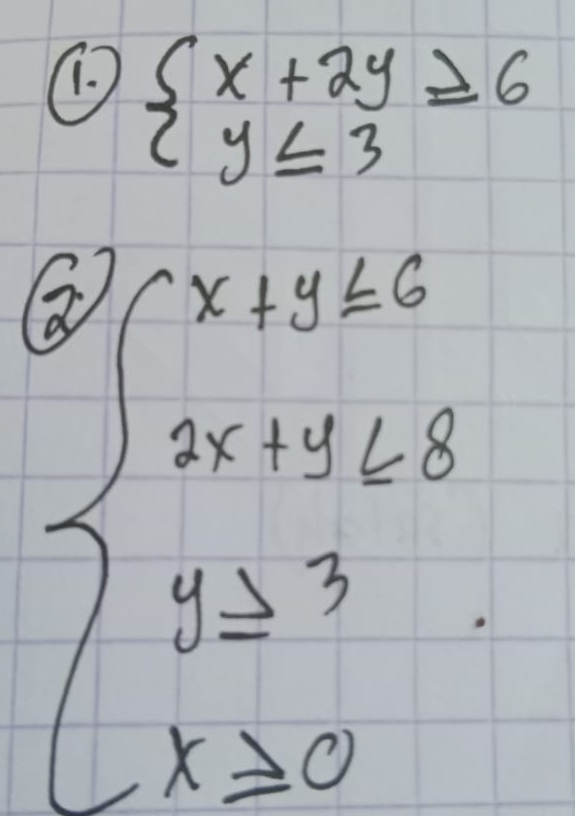 1. { x + 2y ≥ 6
y ≤ 3
2. { x + y ≤ 6
2x + y ≤ 8
y ≥ 3
x ≥ 0